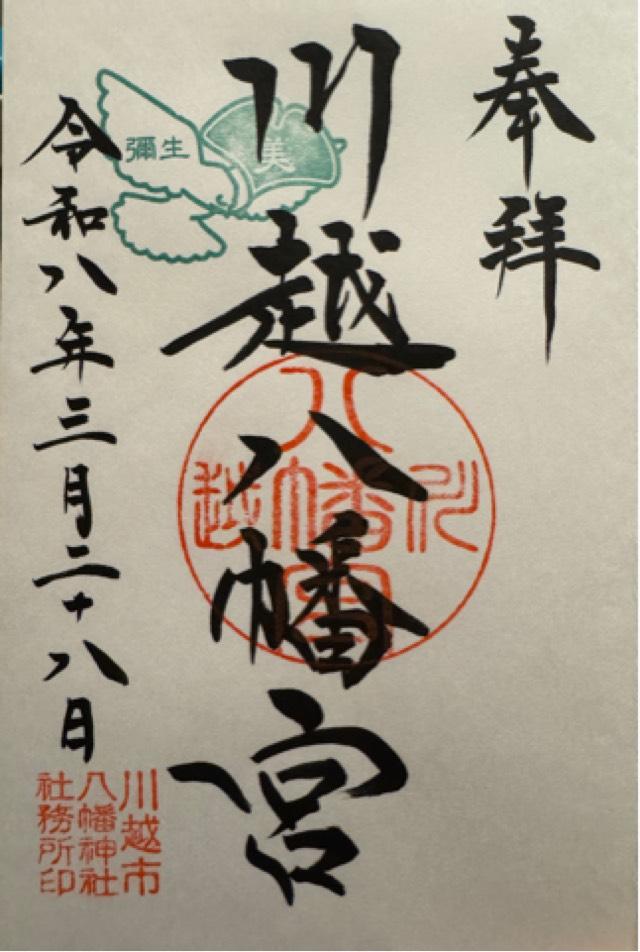 奉拝
川越八幡宮
令和八年三月二十八日
彌生
美
八
川
幡
越
宮
川越市
八幡神社
社務所印